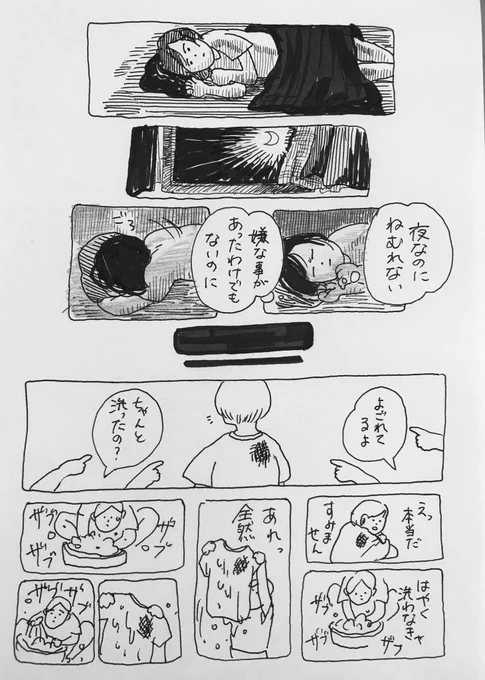 夜なのに
ねむれない
嫌な事が
あったわけでも
ないのに
ごろ
よごれて
るよ
ちゃんと
洗ったの?
えっ
本当だ
すみま
せん
はやく
洗わなきゃ
ザブ
ザブ
ザブ
あれっ
全然
ザブ
ザブ
ザブ
ザブ
ザブ
ザブ